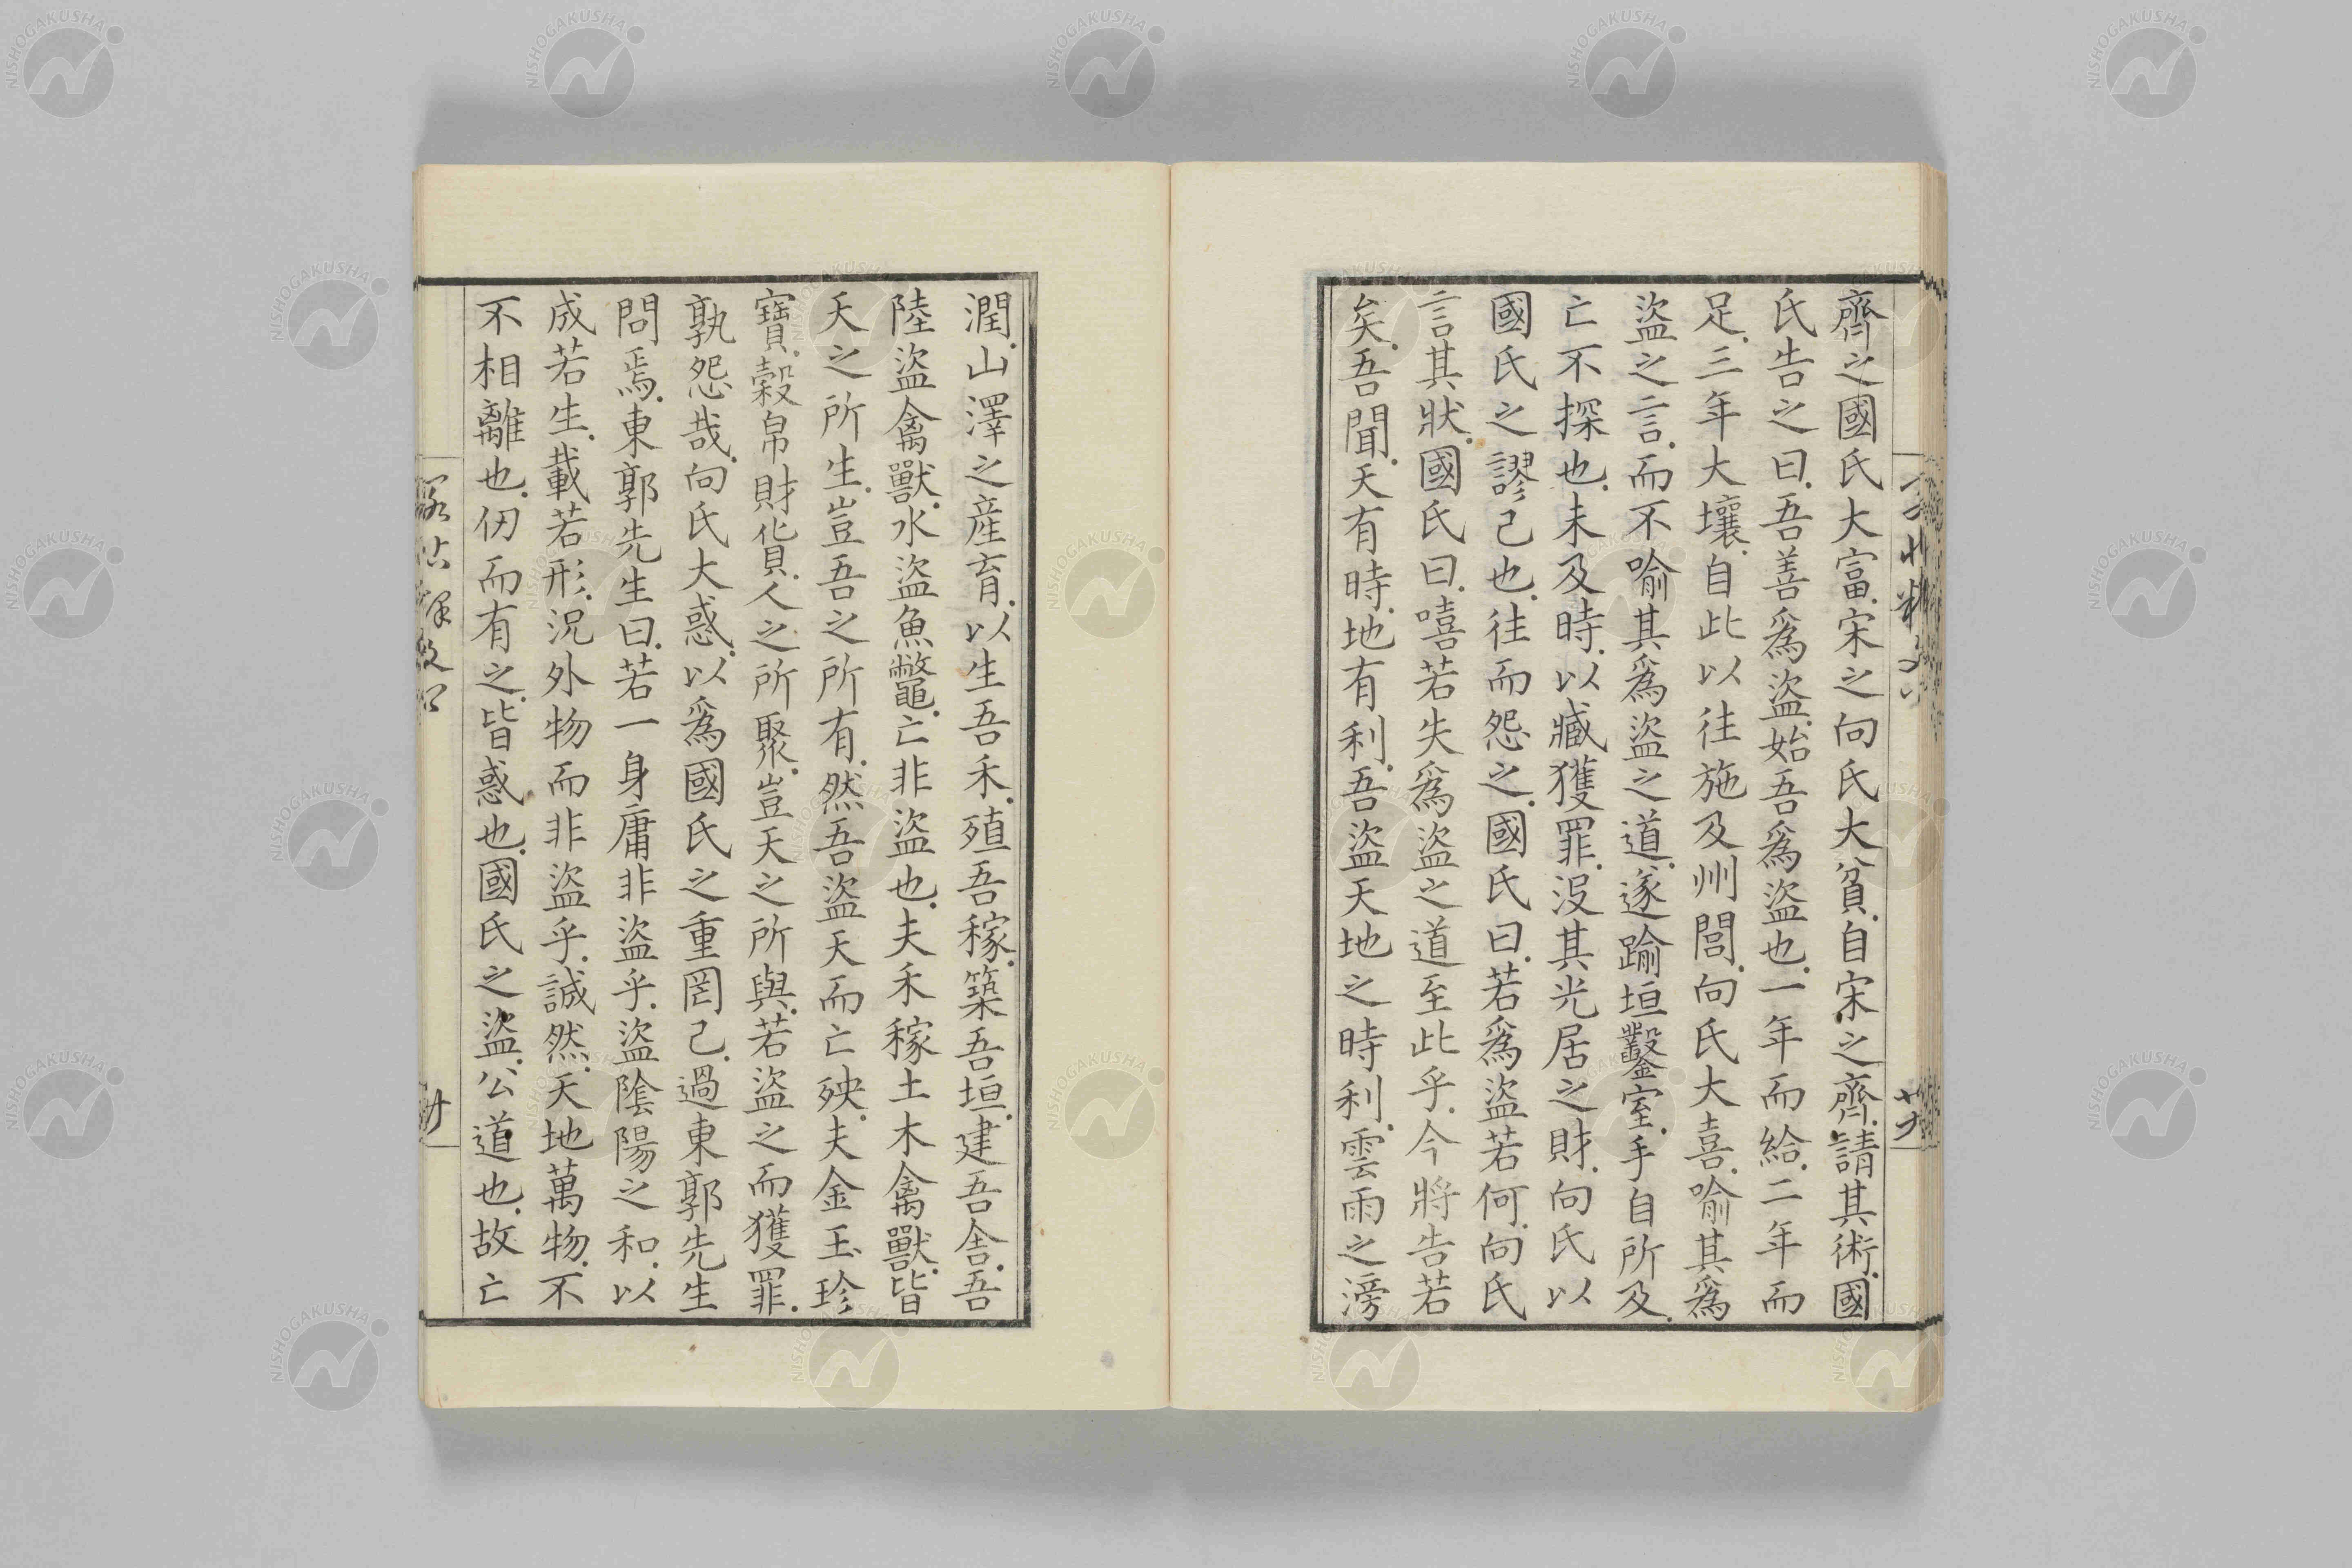 齊之國氏大富.宋之向氏大貧.自宋之齊.請其術.國
氏告之曰.吾善爲盜.始吾爲盜也.一年而給.二年而
足.三年大壤.自此以往施及州閭.向氏大喜.喻其爲
盜之言.而不喻其爲盜之道.遂踰垣鑿室.手自所及.
亡不探也.未及時.以臟獲罪.沒其先居之財.向氏以
國氏之謬己也.往而怨之.國氏曰.若爲盜若何.向氏
言其狀.國氏曰.嘻若失爲盜之道至此乎.今將告若
矣.吾聞.天有時.地有利.吾盜天地之時利.雲雨之滂
潤.山澤之産育.以生吾禾.殖吾稼.築吾垣.建吾舍.吾
陸盜禽獸.水盜魚鼈.亡非盜也.夫禾稼土木禽獸.皆
天之所生.豈吾之所有.然吾盜天而亡殃.夫金玉珍
寶.穀帛財貨.人之所聚.豈天之所與.若盜之而獲罪.
孰怨哉.向氏大惑.以爲國氏之重罔己.過東郭先生
問焉.東郭先生曰.若一身庸非盜乎.盜陰陽之和.以
成若生.載若形.況外物而非盜乎.誠然.天地萬物.不
不相離也.仞而有之.皆惑也.國氏之盜.公道也.故亡
NISHOGAKUSHA